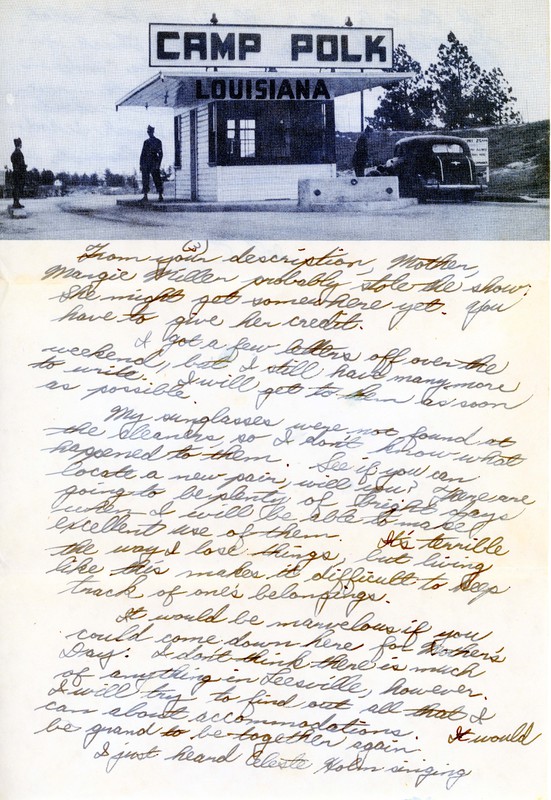 CAMP POLK
LOUISIANA
(3)
From your description, Mother,
Margie Miller probably stole the show.
She might get somewhere yet. You
have to give her credit.
I got a few letters off over the
weekend, but I still have many more
to write. I will get to them as soon
as possible.
My sunglasses were not found at
the cleaners, so I don't know what
happened to them. See if you can
locate a new pair, will you? There are
going to be plenty of bright days
when I will be able to make
excellent use of them. It's terrible
the way I lose things, but living
like this makes it difficult to keep
track of one's belongings.
It would be marvelous if you
could come down here for Mother's
Day. I don't think there is much
of anything in Leesville, however.
I will try to find out all that I
can about accommodations. It would
be grand to be together again.
I just heard Celeste Holm singing